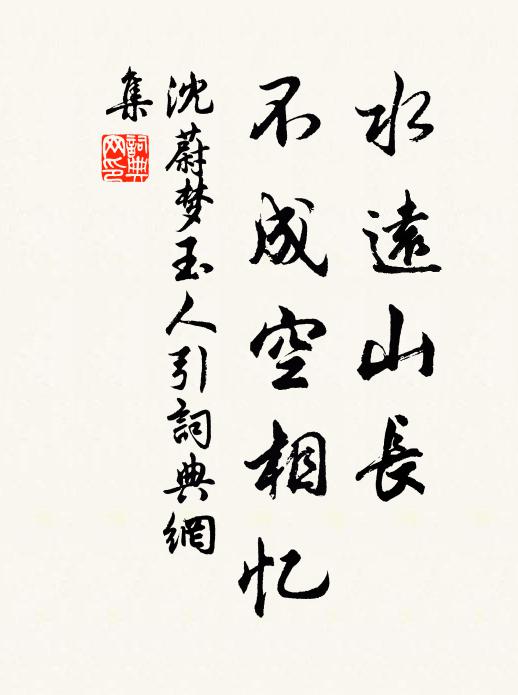 水遠山長
不成空相忆
沈蔚梦玉人引詞典網
集
詞典
网印